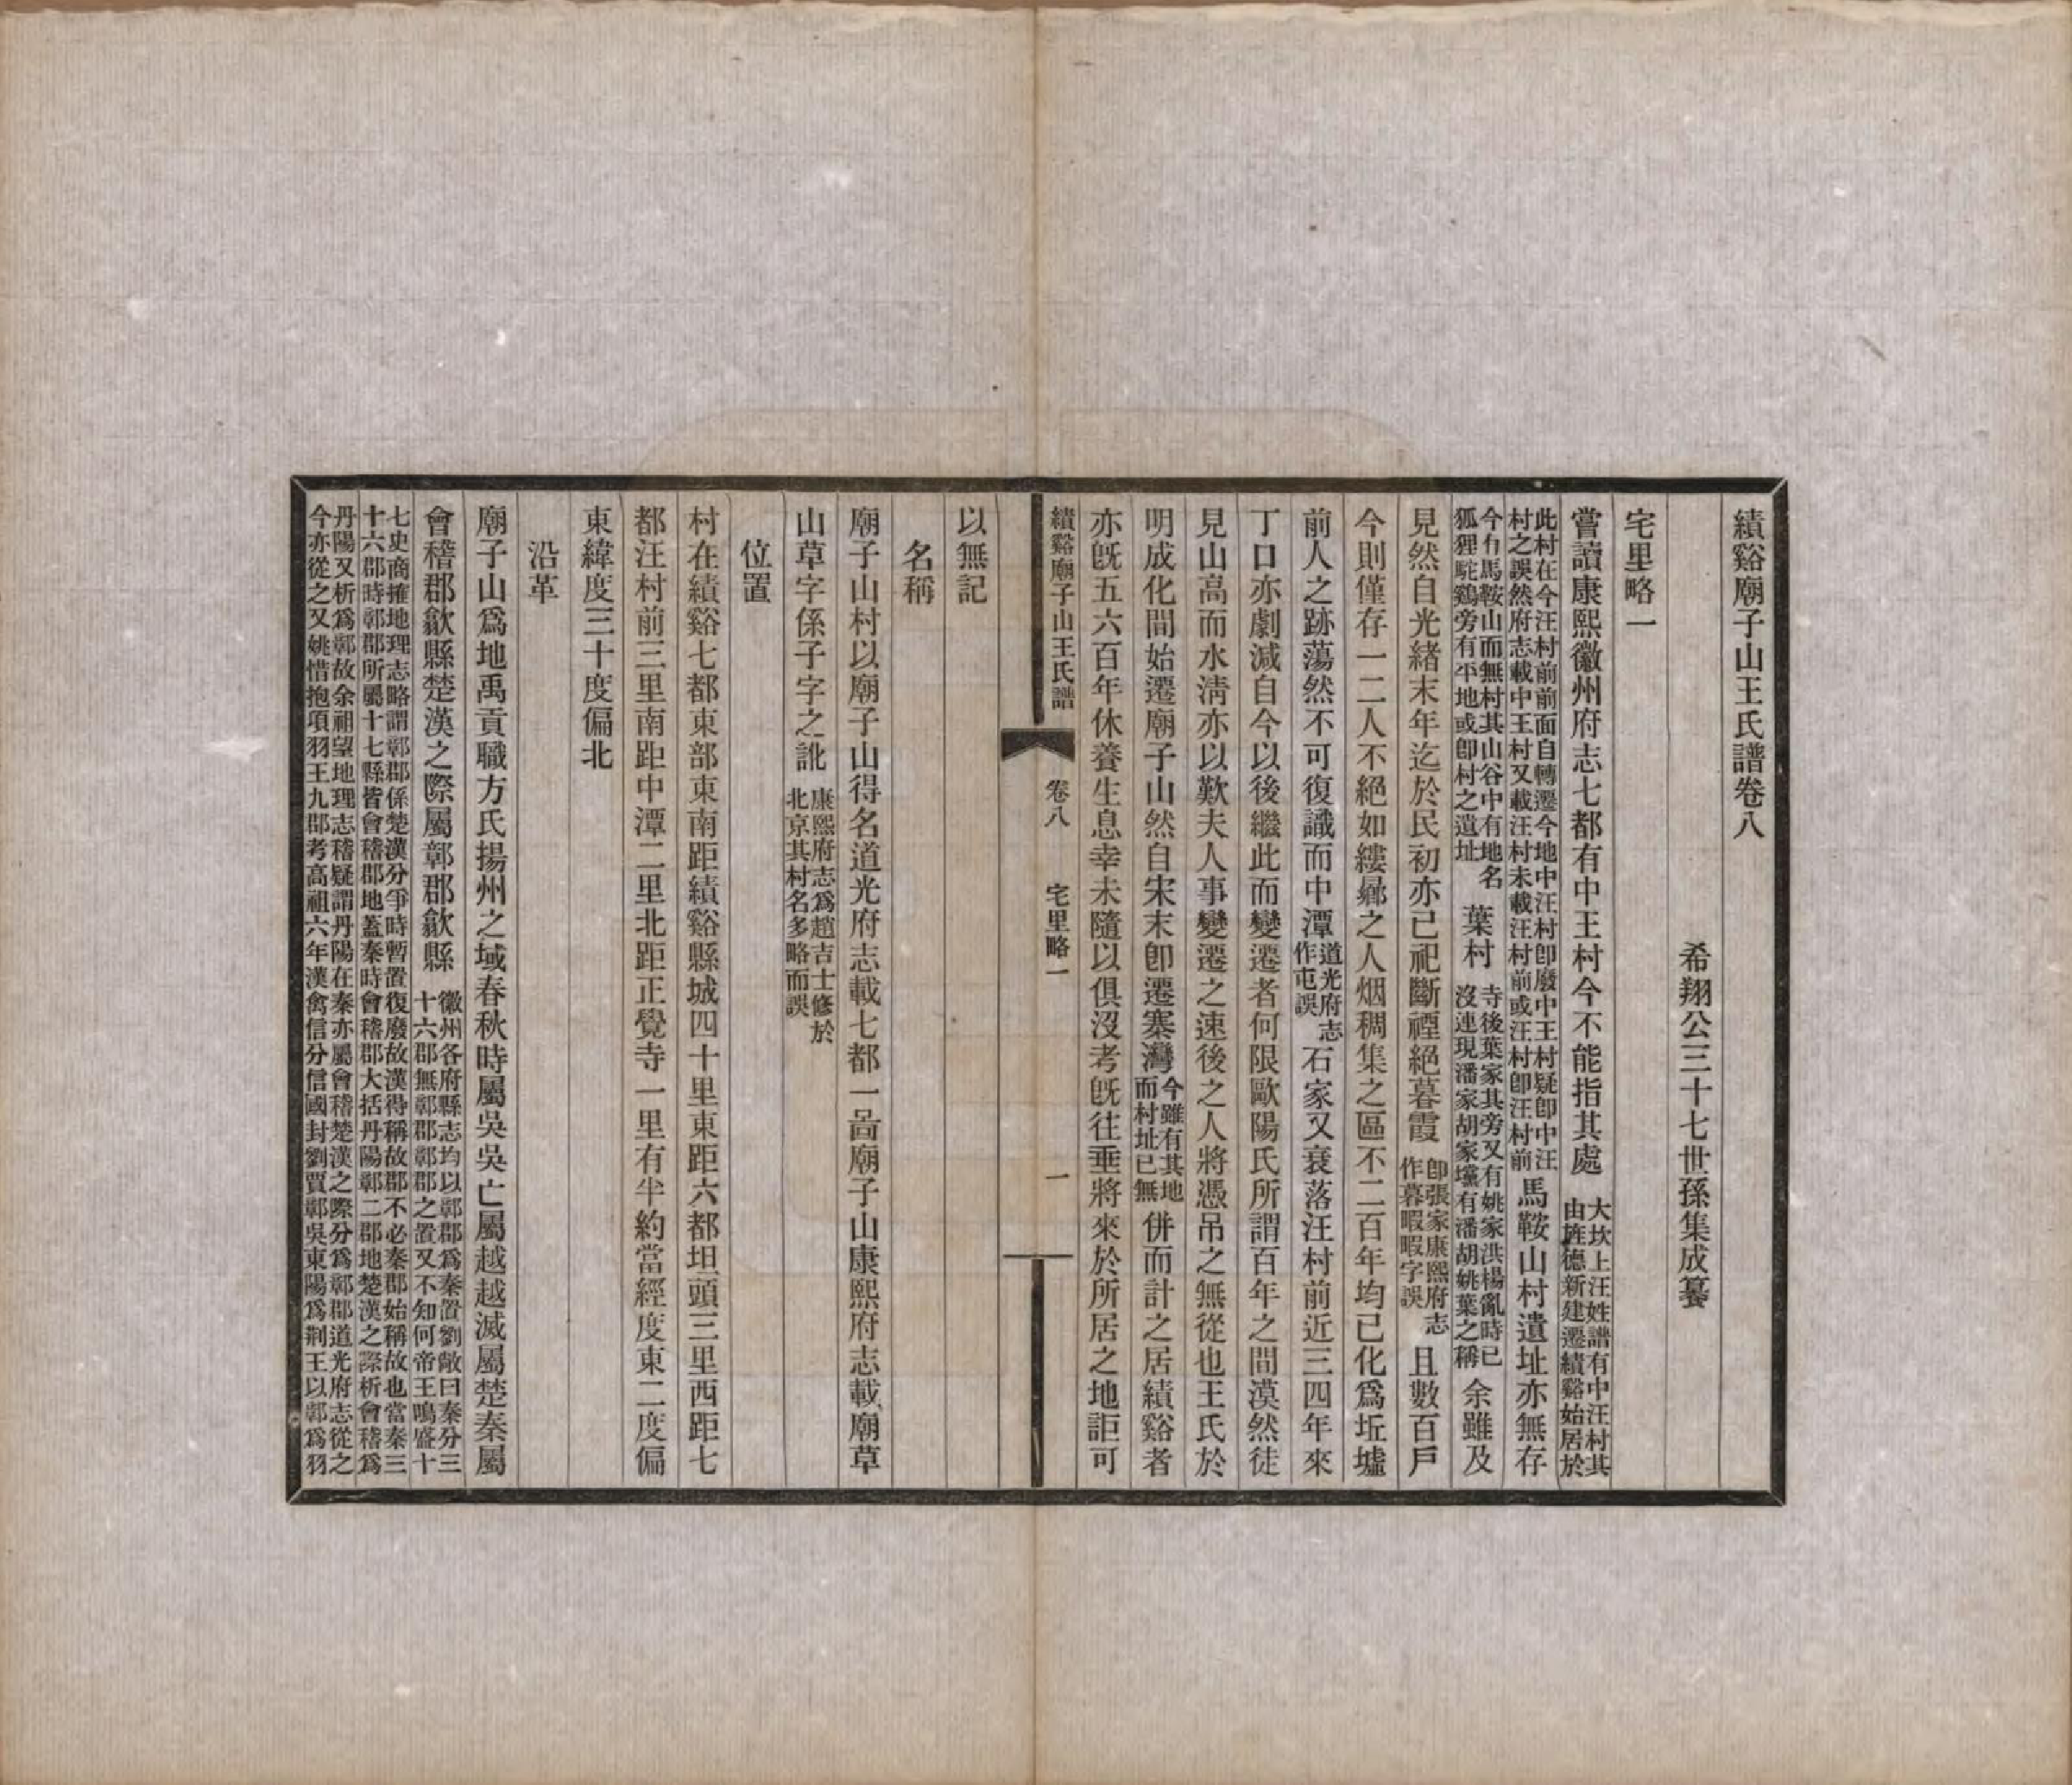 績谿廟子山王氏譜卷八
希翔公三十七世孫集成纂
宅里略一
嘗讀康熙徽州府志七都有中王村今不能指其處大坎上汪姓譜有中汪村其
由旌德新建遷績谿始居於
此村在今汪村前前面自轉遷今地中汪村卽廢中王村疑卽中汪
村之誤然府志載中王村又載汪村未載汪村前或汪村卽汪村前馬鞍山村遺址亦無存
今有馬鞍山而無村其山谷中有地名
狐狸駝鷄旁有平地或卽村之遺址葉村寺後葉家其旁又有姚家洪楊亂時已
沒連現潘家胡家壜有潘胡姚葉之稱余雖及
見然自光緒末年迄於民初亦已祀斷禋絕暮霞卽張家康熙府志
作暮暇暇字誤且數百戶
今則僅存一二人不絕如縷曏之人烟稠集之區不二百年均已化爲坵墟
前人之跡蕩然不可復識而中潭道光府志
作屯誤石家又衰落汪村前近三四年來
丁口亦劇減自今以後繼此而變遷者何限歐陽氏所謂百年之間漠然徒
見山高而水淸亦以歎夫人事變遷之速後之人將憑吊之無從也王氏於
明成化間始遷廟子山然自宋末卽遷寨灣今雖有其地
而村址已無併而計之居績谿者
亦旣五六百年休養生息幸未隨以俱沒考旣往垂將來於所居之地詎可
績谿廟子山王氏譜
卷八
宅里略一
一
以無記
名稱
廟子山村以廟子山得名道光府志載七都一啚廟子山康熙府志載廟草
山草字係子字之訛康熙府志爲趙吉士修於
北京其村名多略而誤
位置
村在績谿七都東部東南距績谿縣城四十里東距六都坦頭三里西距七
都汪村前三里南距中潭二里北距正覺寺一里有半約當經度東二度偏
東緯度三十度偏北
沿革
廟子山爲地禹貢職方氏揚州之域春秋時屬吳吳亡屬越越滅屬楚秦屬
會稽郡歙縣楚漢之際屬鄣郡歙縣徽州各府縣志均以鄣郡爲秦置劉敞曰秦分三
十六郡無鄣郡鄣郡之置又不知何帝王鳴盛十
七史商搉地理志略謂鄣郡係楚漢分爭時暫置復廢故漢得稱故郡不必秦郡始稱故也當秦三
十六郡時鄣郡所屬十七縣皆會稽郡地蓋秦時會稽郡大括丹陽鄣二郡地楚漢之際析會稽爲
丹陽又析爲鄣故余祖望地理志稽疑謂丹陽在秦亦屬會稽楚漢之際分爲鄣郡道光府志從之
今亦從之又姚惜抱項羽王九郡考高祖六年漢禽信分信國封劉賈鄣吳東陽爲荆王以鄣爲羽